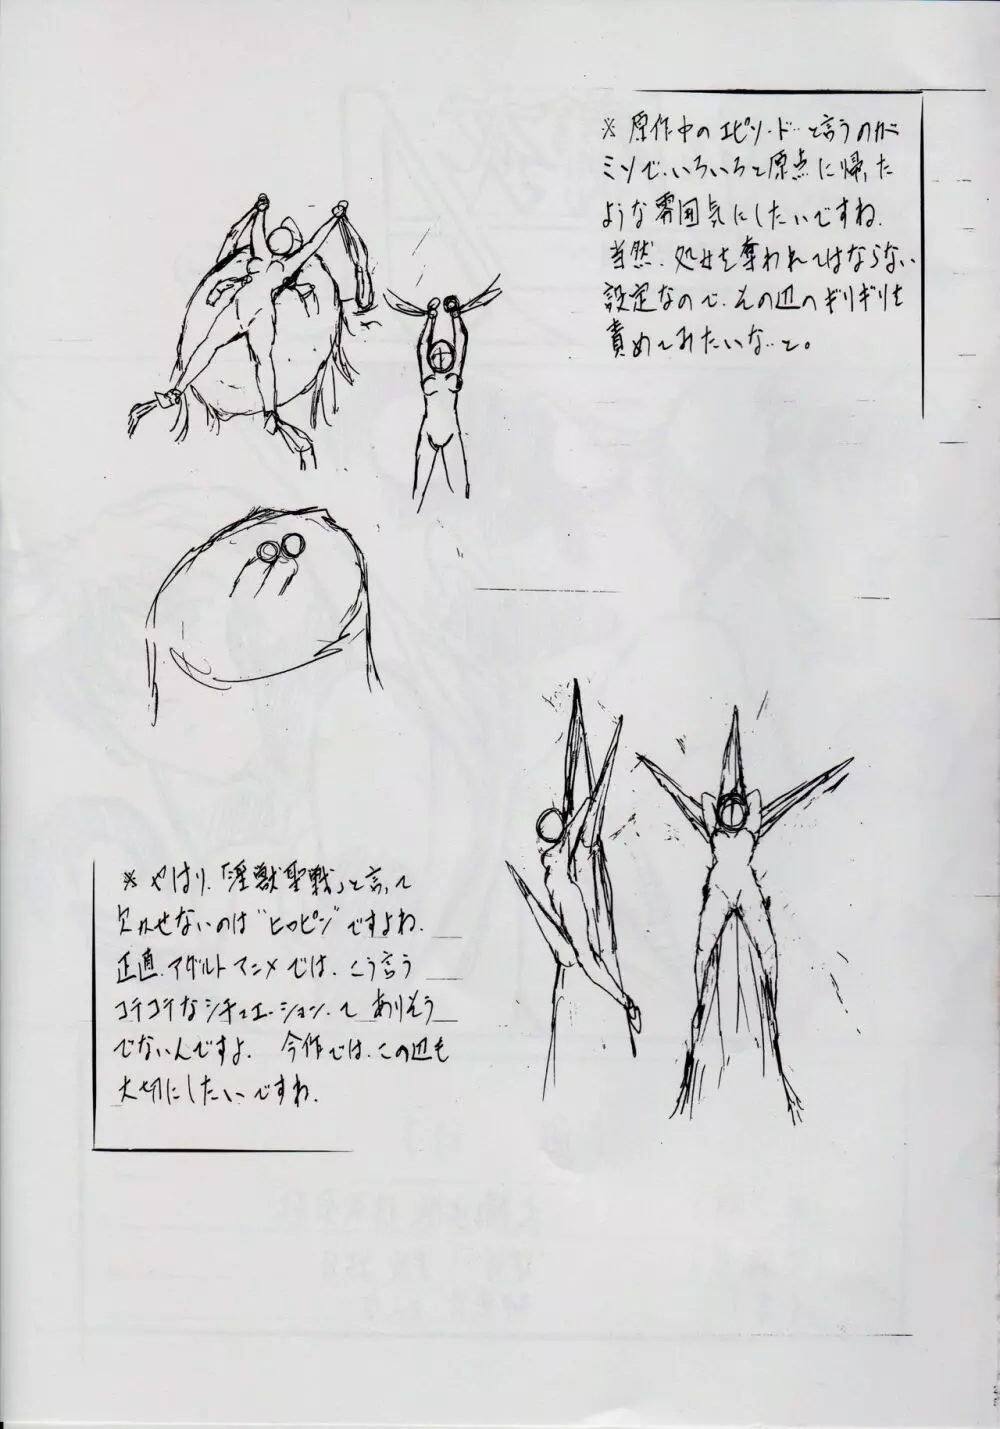 ※ 原作中のエピソード…と言うのが
ミソで、いろいろと原点に帰った
ような雰囲気にしたいですね。
当然、処女を奪われてはならない
設定なので、その辺のギリギリを
責めてみたいな…と。
※ やはり、「淫獣聖戦」と言って
欠かせないのは"ヒロピン"ですよね。
正直、アダルトアニメでは、こう言う
コテコテなシチュエーションってありそう
でないんですよ。 今作では、この辺も
大切にしたいですね。